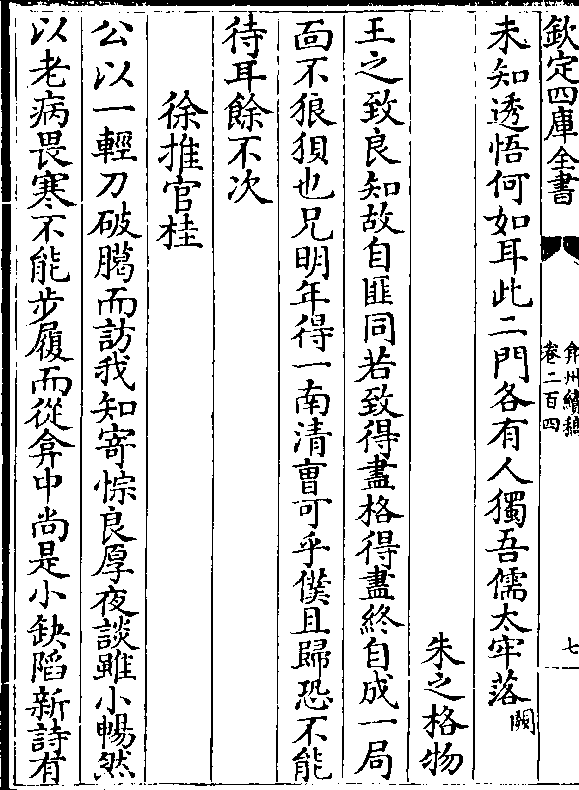 欽定四庫全書
弇州續稿
卷二百四
七
未知透悟何如耳此二門各有人獨吾儒太牢落闕
朱之格物
王之致良知故自匪同若致得盡格得盡終自成一局
面不狼狽也兄明年得一南清曹可乎僕且歸恐不能
待耳餘不次
徐推官桂
公以一輕刀破臈而訪我知寄悰良厚夜談雖小暢然
以老病畏寒不能步履而從弇中尚是小缺陷新詩有